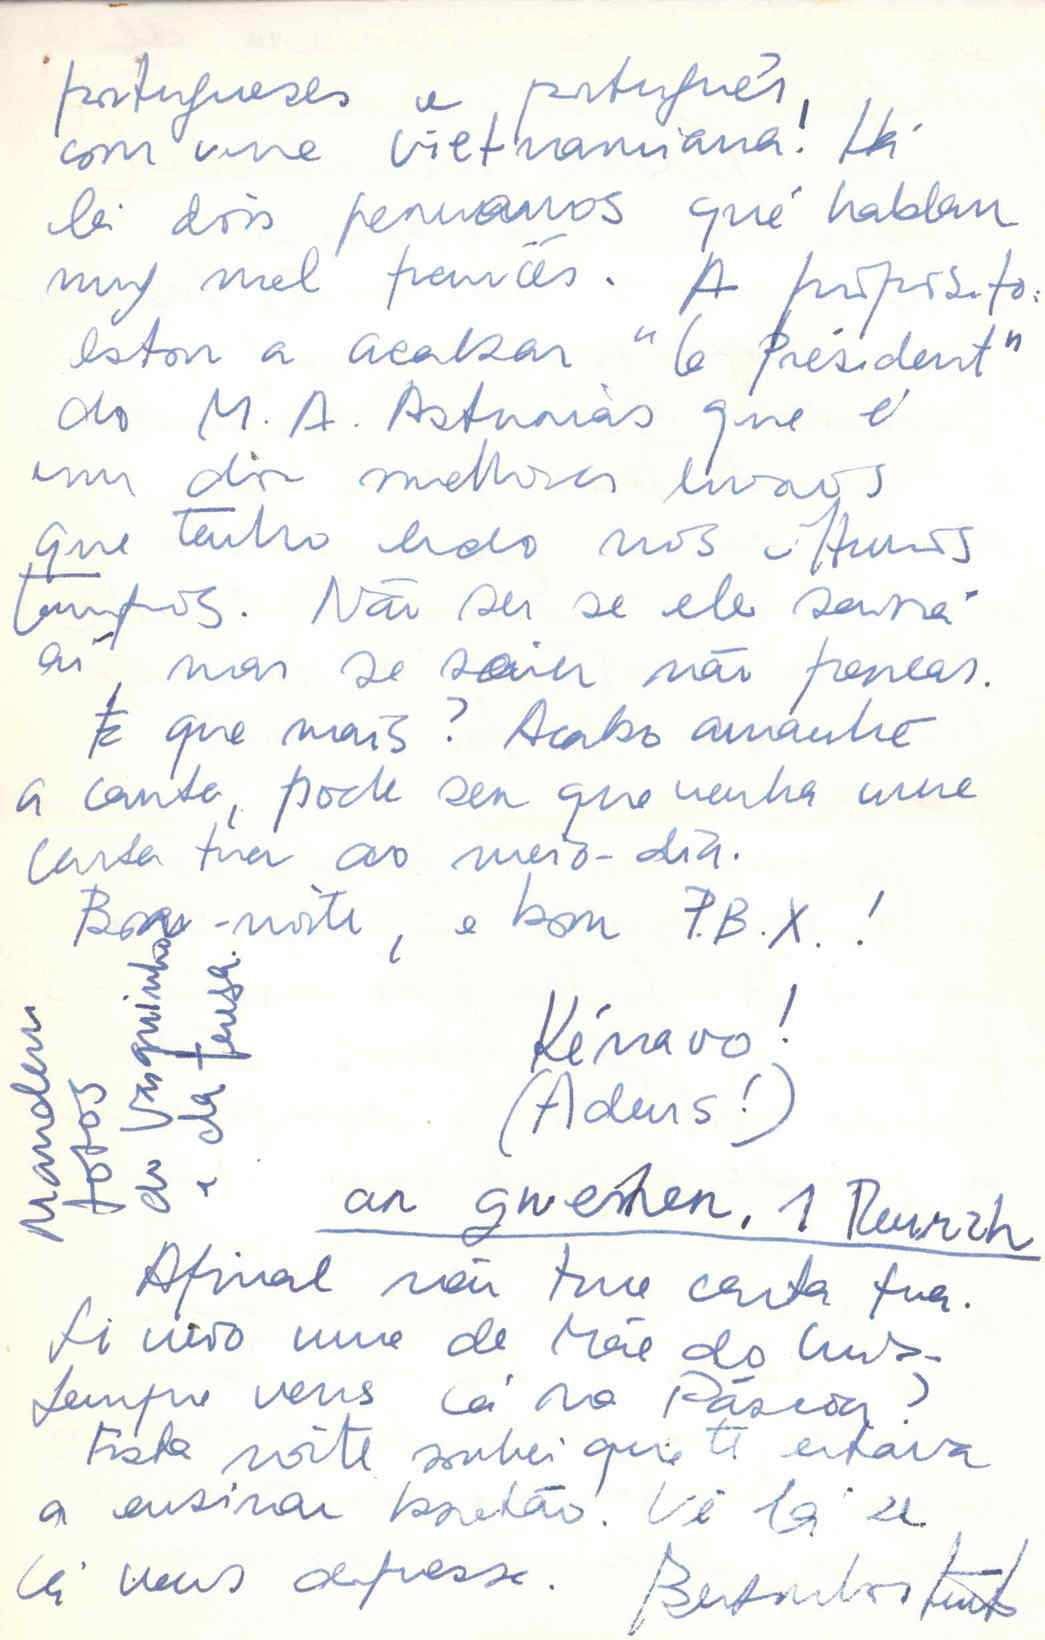 portugueses e português,
com uma vietnamiana! Há
lá dois peruanos que hablan
muy mal francês. A propósito:
estou a acabar "le Président"
do M. A. Asturias que é
um dos melhores livros
que tenho lido nos últimos
tempos. Não sei se ele sairá
aí, mas se sair não percas.
E que mais? Acabo amanhã
a carta, pode ser que venha uma
carta tua ao meio-dia.
Boa-noite, e bom P.B.X.!
Mandem
fotos
do Vasquinho
e da Teresa.
Kénavo!
(Adeus!)
ar gwener, 1 Meurzh
Afinal não tive carta tua.
Só veio uma da Mãe do Luis-
Sempre vens cá na Páscoa?
Esta noite sonhei que te estava
a ensinar bretão. Vê lá se
cá vens depressa.